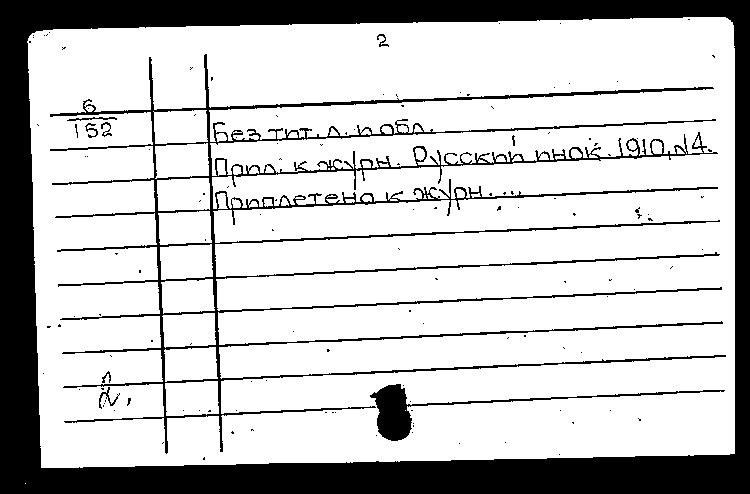 2
6
152
Без тит. л. и обл.
Прил. к журн. Русский инок. 1910, №4.
Приплетена к журн. ...
2.